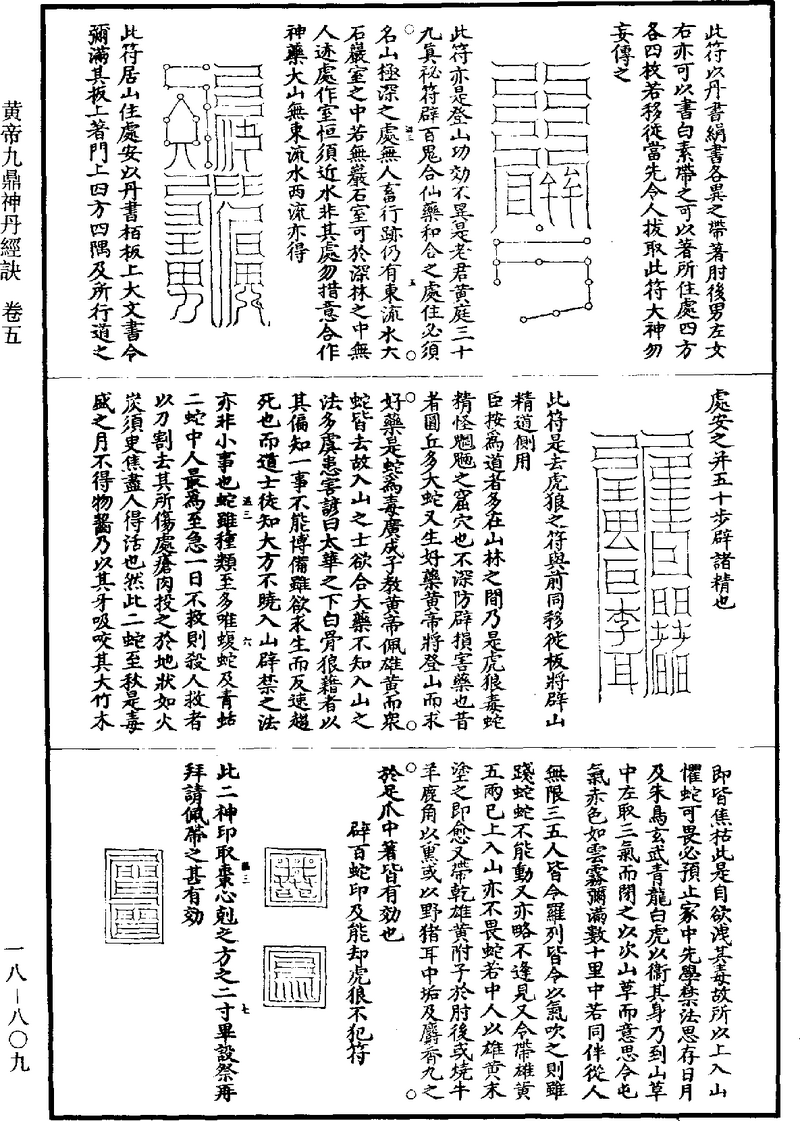 此符以丹書絹書各異之帶著肘後男左女
右亦可以書白素帶之可以著所住處四方
各四枚若移徙當先令人拔取此符大神勿
妄傳之
此符亦是登山功効不異是老君黃庭三十
九真祕符辟百鬼合仙藥和合之處住必須
名山極深之處無人畜行跡仍有東流水大
石巖室之中若無巖石室可於深林之中無
人迹處作室恒須近水非其處勿措意合作
神藥大山無東流水西流亦得
此符居山住處安以丹書栢板上大文書令
彌滿其板上著門上四方四隅及所行道之
處安之并五十步辟諸精也
此符是去虎狼之符與前同移徙板將辟山
精道側用
臣按爲道者多在山林之間乃是虎狼毒蛇
精怪魍魎之窟穴也不深防辟損害藥也昔
者圓丘多大蛇又生好藥黃帝將登山而求
好藥是蛇爲毒廣成子教黃帝佩雄黃而衆
蛇皆去故入山之士欲合大藥不知入山之
法多虞患害諺曰太華之下白骨狼藉者以
其偏知一事不能博備雖欲求生而反速趍
死也而道士徒知大方不曉入山辟禁之法
亦非小事也蛇雖種類至多唯蝮蛇及青蛣
二蛇中人最爲至急一日不救則殺人救者
以刀割去其所傷處瘡肉投之於地狀如火
炭須臾焦盡人得活也然此二蛇至秋是毒
盛之月不得物齧乃以其牙吸咬其大竹木
即皆焦枯此是自欲洩其毒故所以上入山
懼蛇可畏必預止家中先學禁法思存日月
及朱鳥玄武青龍白虎以衞其身乃到山草
中左取三氣而閉之以次山草而意思令屯
氣赤色如雲霧彌滿數十里中若同伴從人
無限三五人皆令羅列皆令以氣吹之則雖
踐蛇蛇不能動又亦略不逢見又令帶雄黃
五兩已上入山亦不畏蛇若中人以雄黃末
塗之即愈又帶乾雄黃附子於肘後或燒牛
羊鹿角以熏或以野猪耳中垢及麝香丸之
於足爪中著皆有効也
辟百蛇印及能却虎狼不犯符
此二神印取棗心剋之方之二寸畢設祭再
拜請佩帶之甚有効
黄帝九鼎神丹經訣 卷五
一八－八〇九